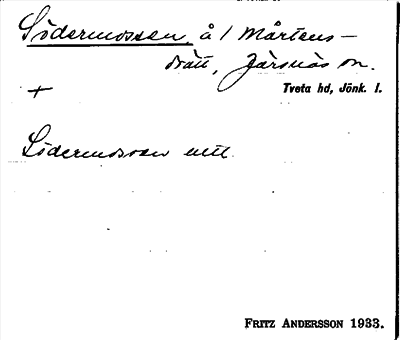 Södermossen, å 1 Mårtens-
Järsnäs sn.
+
Tveta hd, Jönk. l.
Södermossen
FRITZ ANDERSSON 1933.